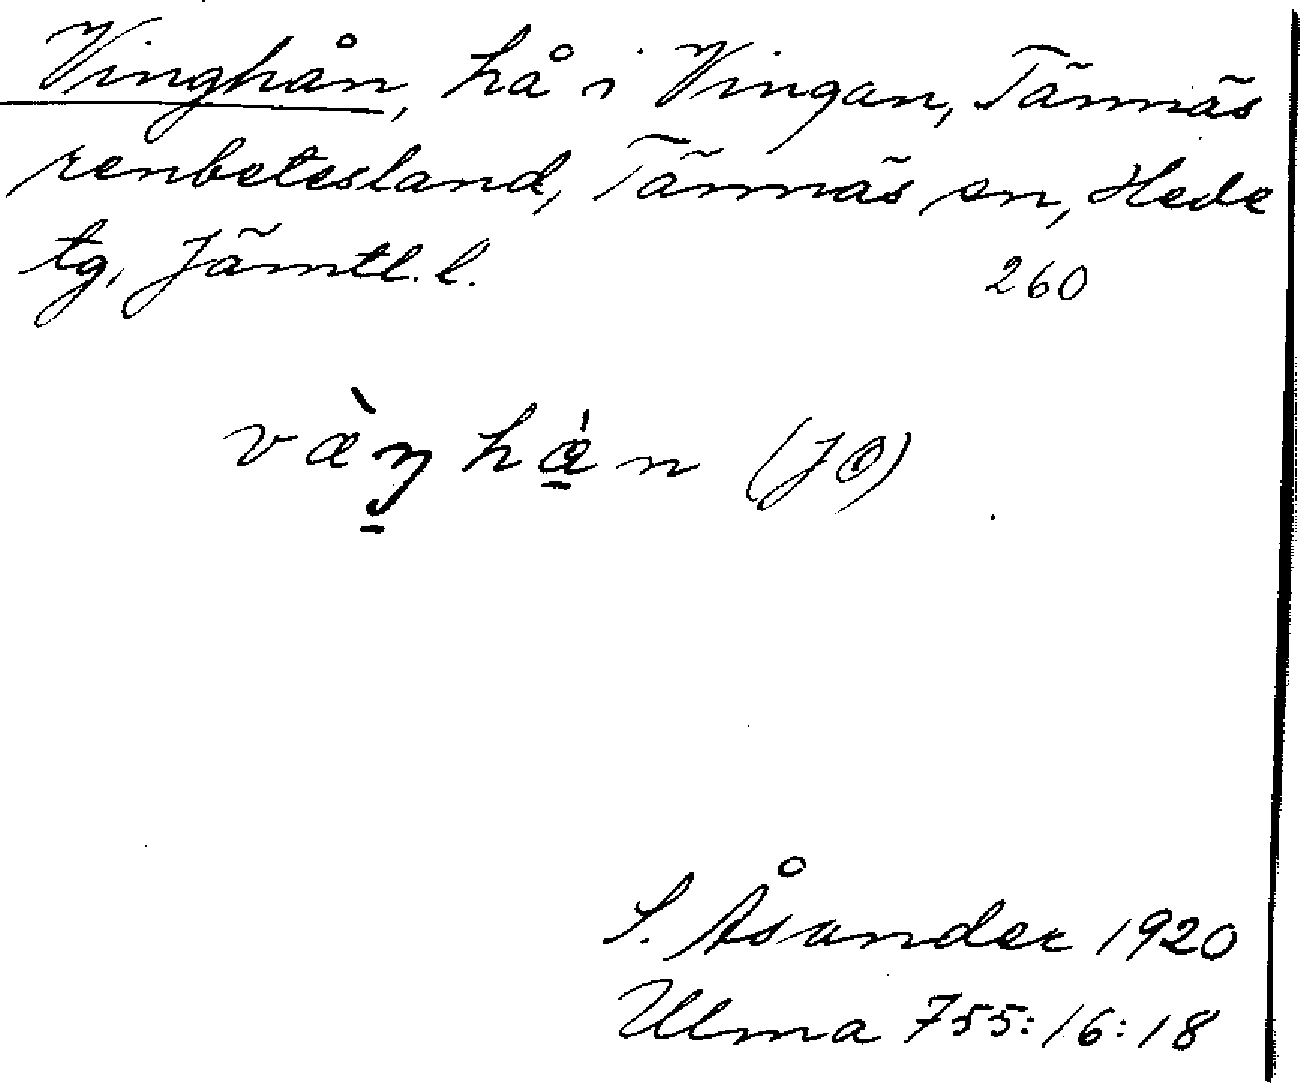 Vinghån, hå i Vingan, Tännäs
renbetesland, Tännäs sn, Hede
tg, Jämtl. l. 260
væ̀ŋ̱hæ̱̍n (JÖ)
S. Åsander 1920
Ulma 755:16:18